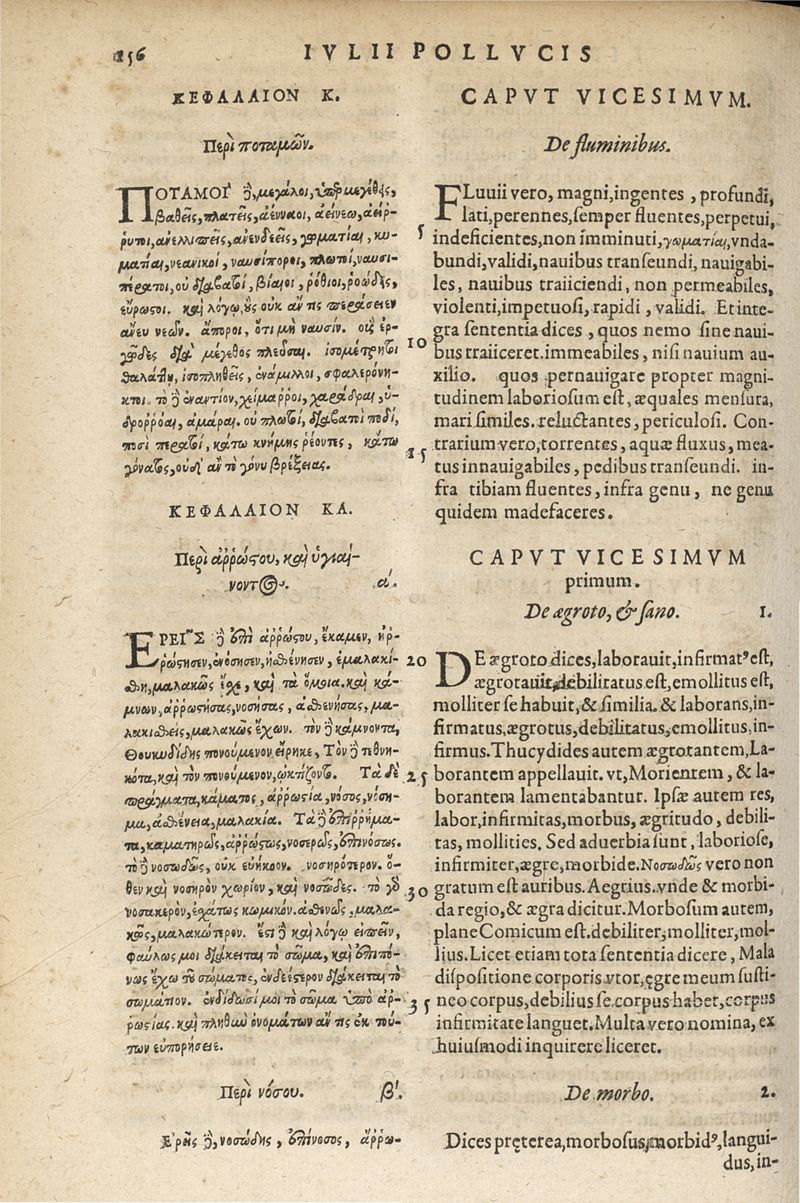 156
IVLII POLLVCIS
ΚΕΦΑΛΑΙΟΝ Κ.
Περὶ ποταμῶν.
ΠΟΤΑΜΟΙ δὲ, μεγάλοι, ὑπερμεγέθεις,
βαθεῖς, πλατεῖς, ἀένναοι,
νεανικοί, ναυσίποροι, πλωτοί, ναυσι-
βίαιοι, ῥόθιοι, ῥοώδεις,
εὔρωστοι. καὶ λόγῳ, οὓς οὐκ ἄν τις περάσειεν
ἄνευ νεῶν. ἄποροι, ὅτι μὴ ναυσίν.
μέγεθος πλεῦσαι. ἰσομέτρητοι
θαλάττῃ, ἰσοπληθεῖς, ἐνάμιλλοι,
τὸ δὲ ἐναντίον, χείμαρροι, χαράδραι, ὑ-
δρορρόαι, ἀμάραι. οὐ πλωτοί, διαβατοὶ ποδί,
ποσὶ περατοί, κάτω κνήμης ῥέοντες, κάτω
γόνατος, οὐδ' ἂν τὸ γόνυ βρέξειας.
ΚΕΦΑΛΑΙΟΝ ΚΑ.
Περὶ ἀρρώστου, καὶ ὑγιαί-
νοντος. α΄.
ΕΡΕΙΣ δὲ ἐπὶ ἀρρώστου, ἔκαμεν, ἠρ-
ρώστησεν, ἐνόσησεν, ἠσθένησεν, ἐμαλακί-
σθη, μαλακῶς ἔχει, καὶ τὰ ὅμοια. καὶ κά-
μνων, ἀρρωστήσας, νοσήσας, ἀσθενήσας, μα-
λακισθεὶς, μαλακῶς ἔχων. τὸν δὲ κάμνοντα,
Θουκυδίδης πονούμενον εἴρηκε, Τὸν τεθνη-
κότα, καὶ τὸν πονούμενον, ᾠκτίζοντο. Τὰ δὲ
πράγματα, κάματος, ἀρρωστία, νόσος, νόση-
μα, ἀσθένεια, μαλακία. Τὰ δὲ ἐπιρρήμα-
τα, καματηρῶς, ἀρρώστως, νοσερῶς, ἐπινόσως.
τὸ δὲ νοσωδῶς, οὐκ εὐήκοον. νοσηρότερον. ὅ-
θεν καὶ νοσηρὸν χωρίον, καὶ νοσῶδες. τὸ γὰρ
νοσακερὸν, ἐσχάτως κωμικόν. ἀσθενῶς, μαλα-
κῶς, μαλακώτερον. ἔστι δὲ καὶ λόγῳ εἰπεῖν,
φαύλως μοι διάκειται τὸ σῶμα, καὶ ἐπιπό-
νως ἔχω τοῦ σώματος, ἐνδεέστερον διάκειται τὸ
σωμάτιον. ἐνδίδωσί μοι τὸ σῶμα ὑπὸ ἀρ-
ρωστίας. καὶ πλῆθος ὀνομάτων ἄν τις ἐκ τού-
των εὐπορήσειε.
Περὶ νόσου. β΄.
Ἐρεῖς δὲ, νοσώδης, ἐπίνοσος, ἄρρω-
CAPVT VICESIMVM.
De fluminibus.
FLuuii vero, magni, ingentes, profundi,
lati, perennes, semper fluentes, perpetui,
5 indeficientes, non imminuti, γωματίαι, vnda-
bundi, validi, nauibus transeundi, nauigabi-
les, nauibus traiiciendi, non permeabiles,
violenti, impetuosi, rapidi, validi. Et inte-
gra sententia dices, quos nemo sine naui-
10 bus traiiceret. immeabiles, nisi nauium au-
xilio. quos pernauigare propter magni-
tudinem laboriosum est, æquales mensura,
mari similes. reluctantes, periculosi. Con-
trarium vero, torrentes, aquæ fluxus, mea-
15 tus innauigabiles, pedibus transeundi. in-
fra tibiam fluentes, infra genu, ne genu
quidem madefaceres.
CAPVT VICESIMVM
primum.
De ægroto, & sano. 1.
DE ægroto dices, laborauit, infirmatꝰ est,
20 ægrotauit, debilitatus est, emollitus est,
molliter se habuit, & similia. & laborans, in-
firmatus, ægrotus, debilitatus, emollitus, in-
firmus. Thucydides autem ægrotantem, La-
25 borantem appellauit. vt, Morientem, & la-
borantem lamentabantur. Ipsæ autem res,
labor, infirmitas, morbus, ægritudo, debili-
tas, mollities. Sed aduerbia sunt, laboriose,
infirmiter, ægre, morbide. Νοσωδῶς vero non
30 gratum est auribus. Aegrius. vnde & morbi-
da regio, & ægra dicitur. Morbosum autem,
plane Comicum est. debiliter, molliter, mol-
lius. Licet etiam tota sententia dicere, Mala
dispositione corporis vtor, ęgre meum susti-
35 neo corpus, debilius se corpus habet, corpus
infirmitate languet. Multa vero nomina, ex
huiusmodi inquirere liceret.
De morbo. 2.
Dices pręterea, morbosus, morbidꝰ, langui-
dus, in-